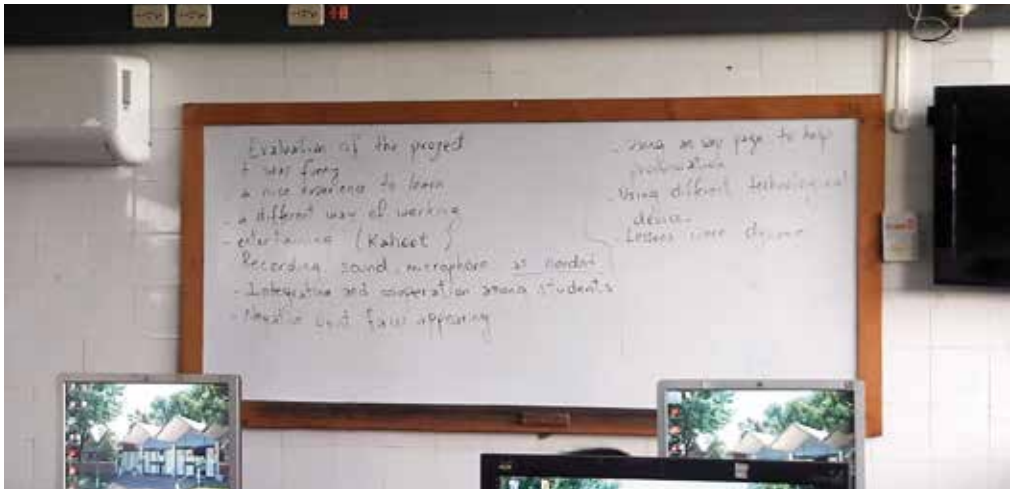 Evaluation of the project
t was funny
a nice experience to learn
- a different way of working
- entertaining (Kahoot)
Recording sound, microphone is needed
- Integration and cooperation among students
- Negative point faces appearing
- Using an web page to help
- Using diferent technological
device.
- Lessons were